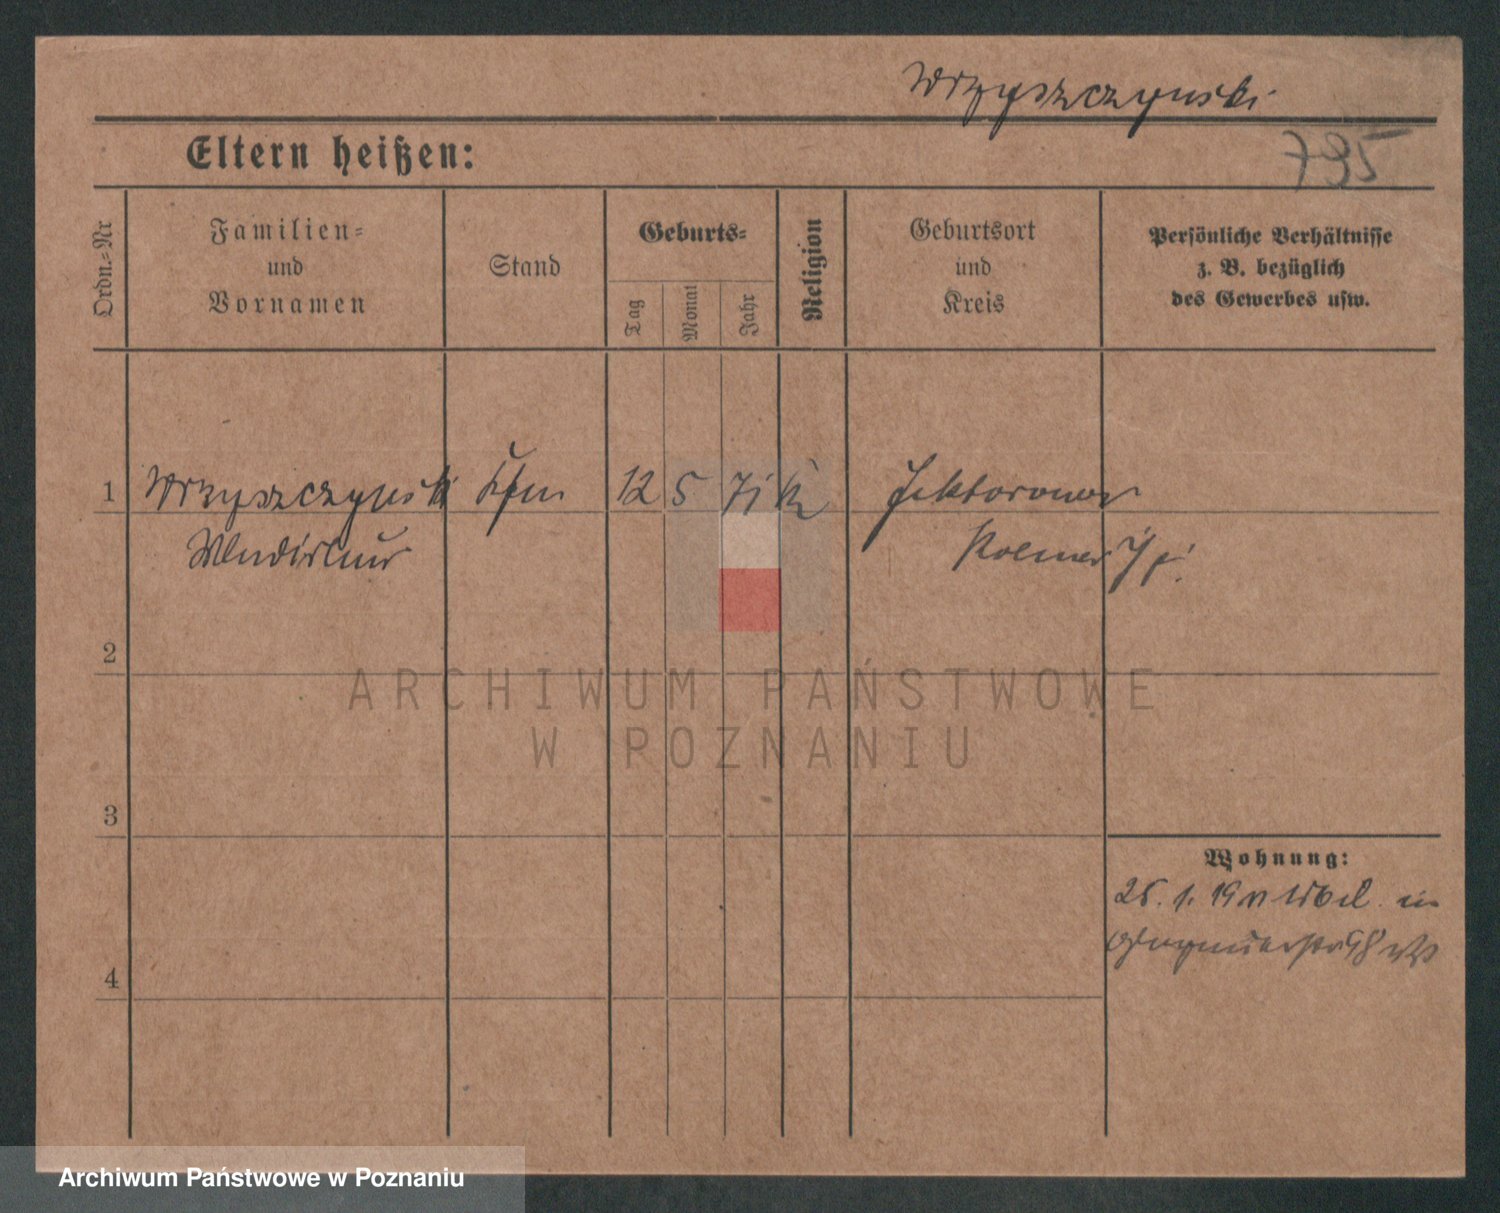 Wrzyszczynski
Eltern heißen:
795
Ordn.=Nr
Familien=
und
Vornamen
Stand
Geburts=
Tag
Monat
Jahr
Religion
Geburtsort
und
Kreis
Persönliche Verhältnisse
z. B. bezüglich
des Gewerbes usw.
1 Wrzyszczynski 12 5 71 k
Kolmar i/p.
2
3
4
Wohnung:
25. 1. 19
ARCHIWUM PAŃSTWOWE
W POZNANIU
Archiwum Państwowe w Poznaniu